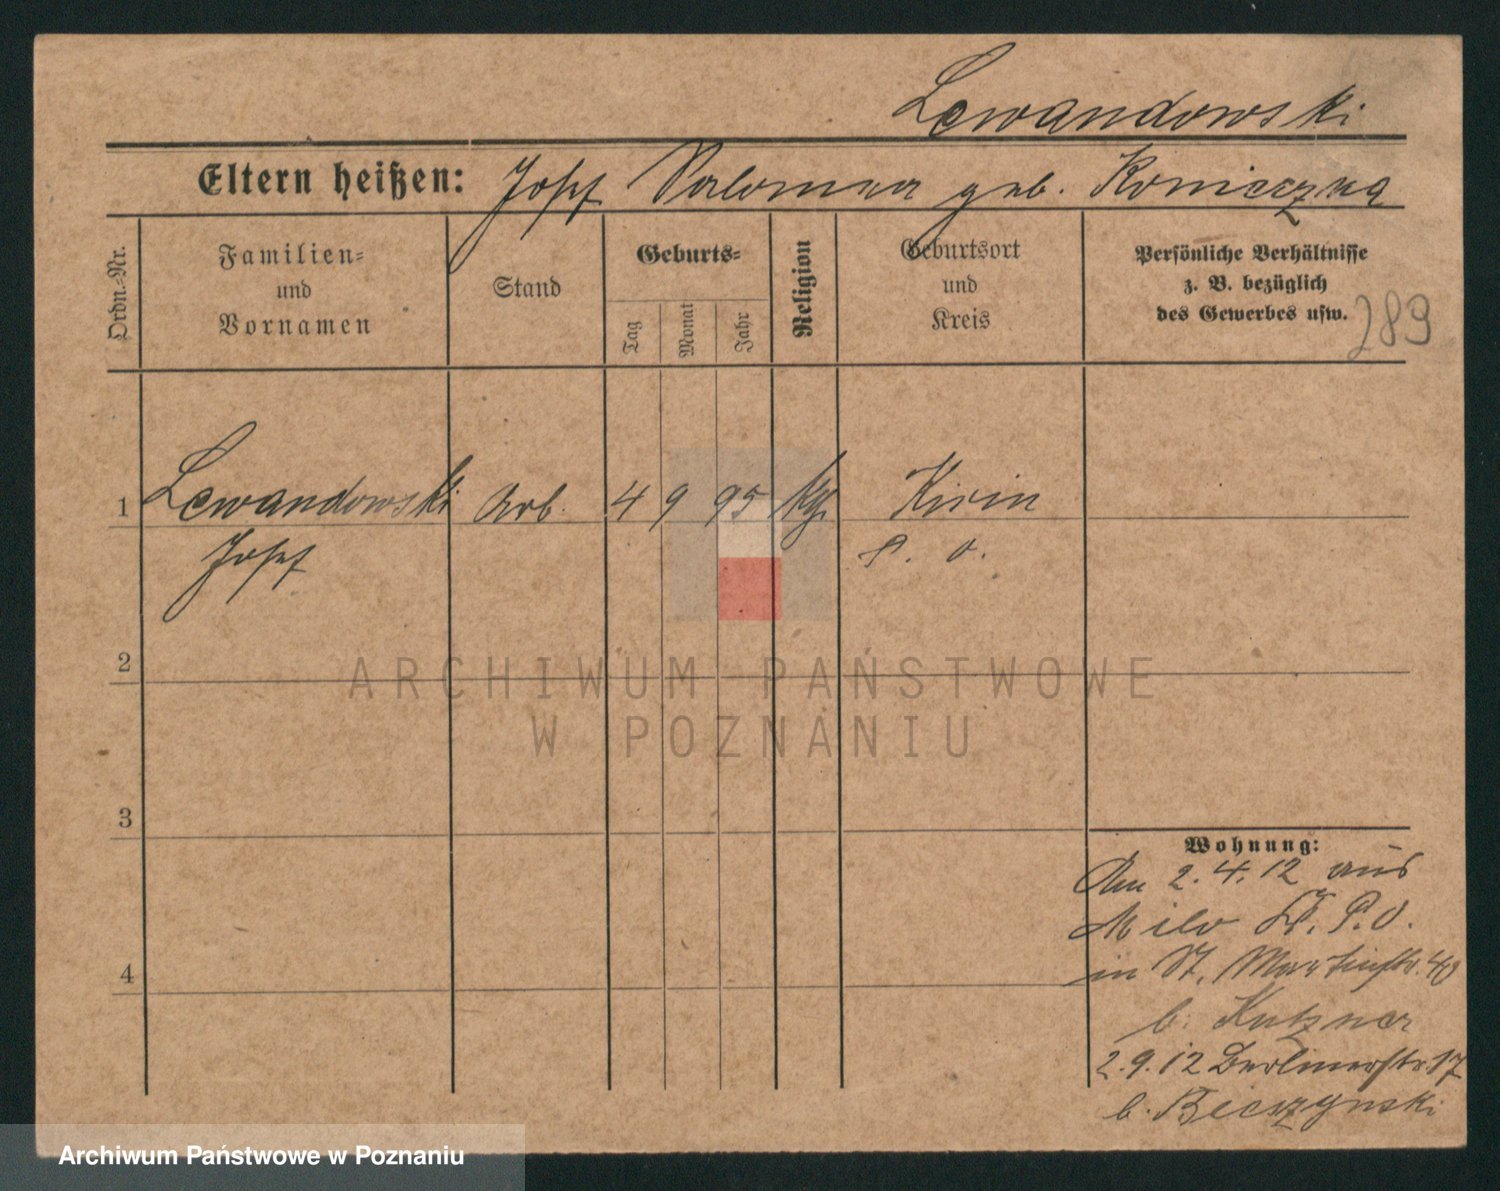 Lewandowski
Eltern heißen: Josef Salomea geb. Konieczna
Ordn.-Nr.
Familien-
und
Vornamen
Stand
Geburts-
Tag
Monat
Jahr
Religion
Geburtsort
und
Kreis
Persönliche Verhältnisse
z. B. bezüglich
des Gewerbes usw.
289
1 Lewandowski Arb. 4 9 95 Kath. Kirin
Josef P. O.
2
3
4
Wohnung:
Am 2.4.12 aus
Milo Kr. P.O.
in St. Martinstr. 40
b. Kutzner
2.9.12 Berlinerstr. 17
b. Bieczynski
ARCHIWUM PAŃSTWOWE
W POZNANIU
Archiwum Państwowe w Poznaniu